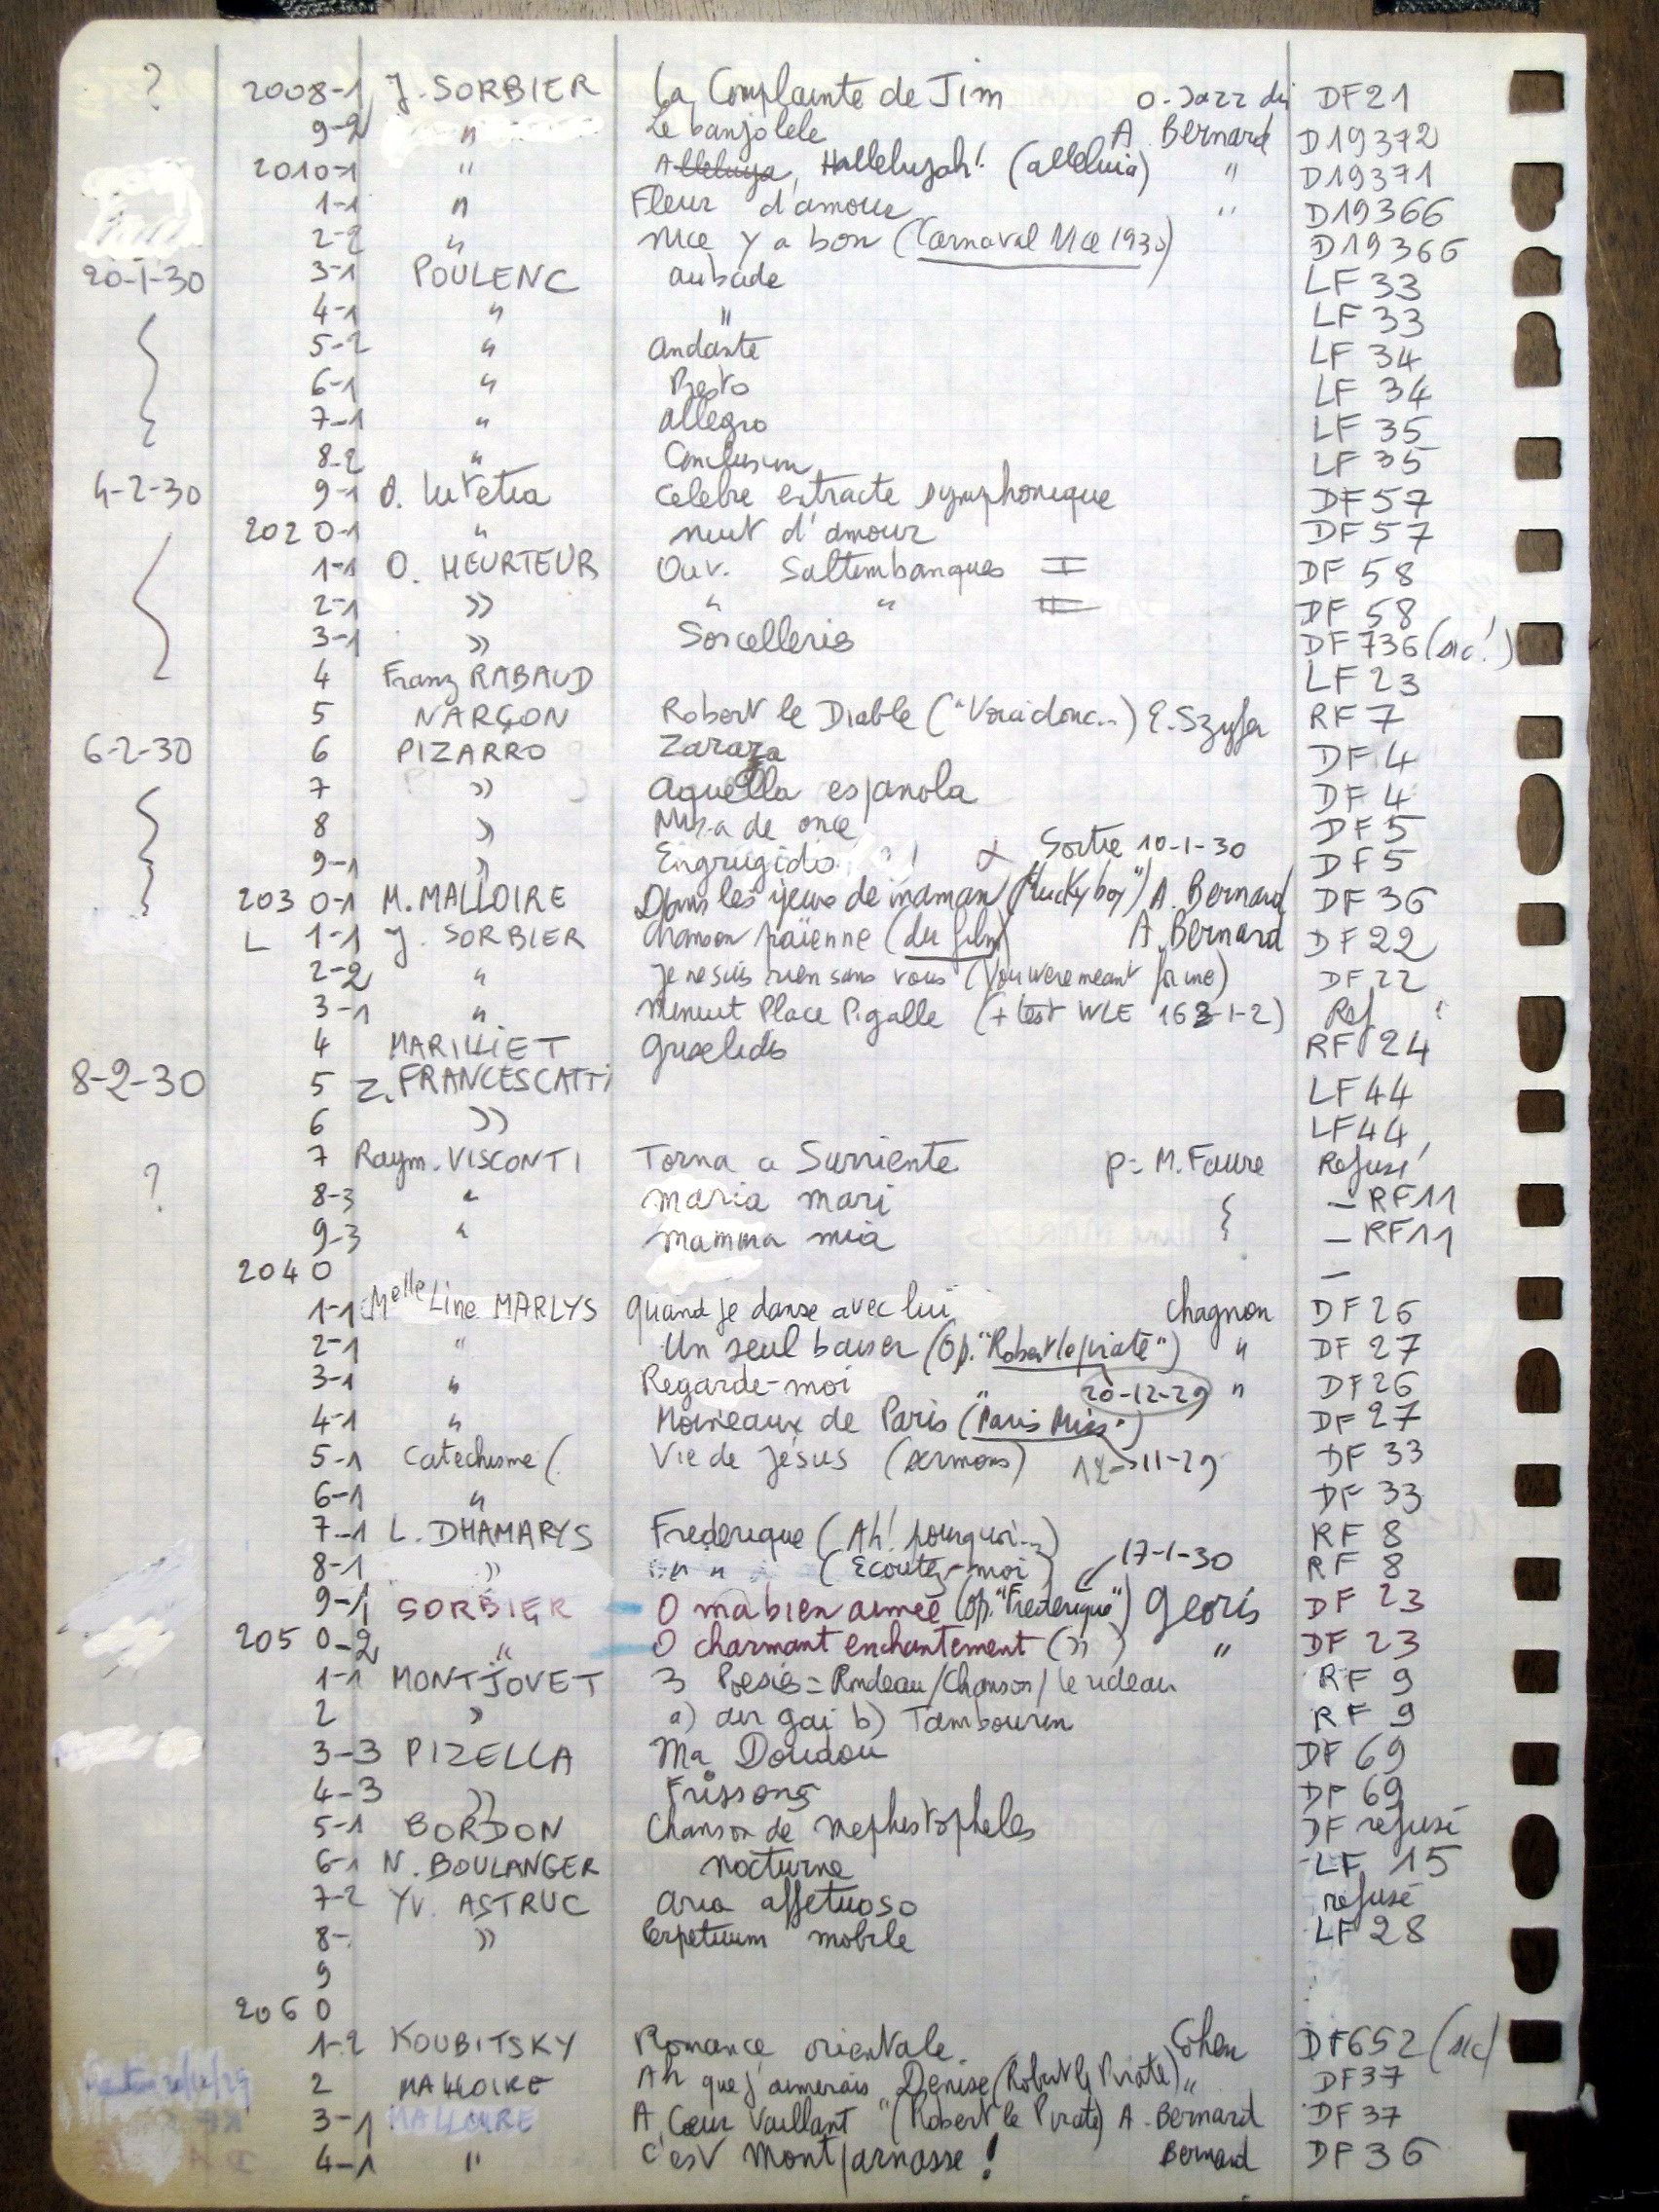 ? 2008-1 J. SORBIER La Complainte de Jim O. Jazz du DF21
9-2 " Le banjolele A. Bernard D19372
2010-1 " Alleluya, Hallelujah! (alleluia) " D19371
1-1 " Fleur d'amour " D19366
2-2 " Nice y a bon (Carnaval Nice 1930) D19366
20-1-30 3-1 POULENC aubade LF 33
4-1 " " LF 33
5-2 " andante LF 34
6-1 " Presto LF 34
7-1 " allegro LF 35
8-2 " Conclusion LF 35
4-2-30 9-1 O. Lutetia celebre entracte symphonique DF57
2020-1 " nuit d'amour DF57
1-1 O. HEURTEUR Ouv. Saltimbanques I DF 58
2-1 » " " II DF 58
3-1 » Sorcelleries DF736 (sic!)
4 Franz RABAUD LF 23
5 NARÇON Robert le Diable ("Voici donc..) E. Szyfer RF 7
6-2-30 6 PIZARRO Zaraza DF 4
7 » aquella espanola DF 4
8 » Misa de once DF 5
9-1 » Engrugido Sortie 10-1-30 DF 5
2030-1 M. MALLOIRE Dans les yeux de maman ("Lucky boy") A. Bernard DF 36
L 1-1 J. SORBIER Chanson païenne (du film) A. Bernard DF 22
2-2 " Je ne suis rien sans vous (You were meant for me) DF 22
3-1 " Minuit Place Pigalle (+ test WLE 163-1-2) Ref
4 MARILLIET Griselidis RF 24
8-2-30 5 Z. FRANCESCATTI LF 44
6 » LF 44
? 7 Raym. VISCONTI Torna a Surriente p= M. Faure Refusé
8-3 " maria mari – RF11
9-3 " mamma mia – RF11
2040 –
1-1 Melle Line MARLYS quand je danse avec lui Chagnon DF 26
2-1 " Un seul baiser (Op. "Robert le pirate") " DF 27
3-1 " Regarde-moi 20-12-29 " DF26
4-1 " Moineaux de Paris ("Paris Miss") DF 27
5-1 Catechisme ( Vie de Jésus (sermons) 12-11-29 DF 33
6-1 " DF 33
7-1 L. DHAMARYS Frederique (Ah! pourquoi...) RF 8
8-1 » " " (Ecoutez-moi) 17-1-30 RF 8
9-1 SORBIER O ma bien aimée (Op. "Frederique") Georis DF 23
2050-2 " O charmant enchantement (») " DF 23
1-1 MONTJOVET 3 Poesies = Rondeau/Chanson/le rideau RF 9
2 » a) air gai b) Tambourin RF 9
3-3 PIZELLA Ma Doudou DF 69
4-3 » Frissons DF 69
5-1 BORDON Chanson de mephistopheles DF refusé
6-1 N. BOULANGER nocturne LF 15
7-2 YV. ASTRUC aria affetuoso refusé
8- » Perpetuum mobile LF 28
9
2060
1-2 KOUBITSKY Romance orientale. Cohen DF652 (sic)
2 MALLOIRE Ah que j'aimerais Denise (Robert le Pirate) " DF37
3-1 MALLOIRE A Cœur Vaillant "(Robert le Pirate) A. Bernard DF 37
4-1 " C'est Montparnasse! Bernard DF 36